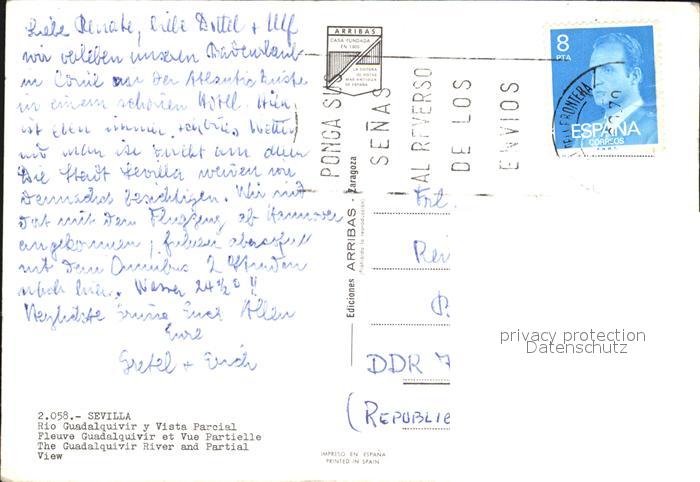 Liebe Renate, liebe Dottel + Ulf
wir verleben unseren Badeurlaub
in Conil an der Atlantic Küste
in einem schönen Hotel. Hier
ist eben immer Wetter
und man ist
Die Stadt Sevilla werden wir
demnächst besichtigen. Wir sind
dort mit dem Flugzeug ab Hannover
angekommen,
mit dem Omnibus 2 Stunden
nach hier. Wasser 24½° !!
Herzlichste Grüße Euch Allen
Eure
Gretel + Erich
2.058.- SEVILLA
Rio Guadalquivir y Vista Parcial
Fleuve Guadalquivir et Vue Partielle
The Guadalquivir River and Partial
View
ARRIBAS
CASA FUNDADA
EN 1905
LA EDITORA
DE POSTAL
MAS ANTIGUA
DE ESPAÑA
Ediciones ARRIBAS - Zaragoza
Prohibida la reproducción
IMPRESO EN ESPAÑA
PRINTED IN SPAIN
PONGA SUS
SEÑAS
AL REVERSO
DE LOS
ENVIOS
8
PTA
ESPAÑA
CORREOS
FRONTERA
79
Frl.
Ren
DDR 7
(REPUBLIE
privacy protection
Datenschutz